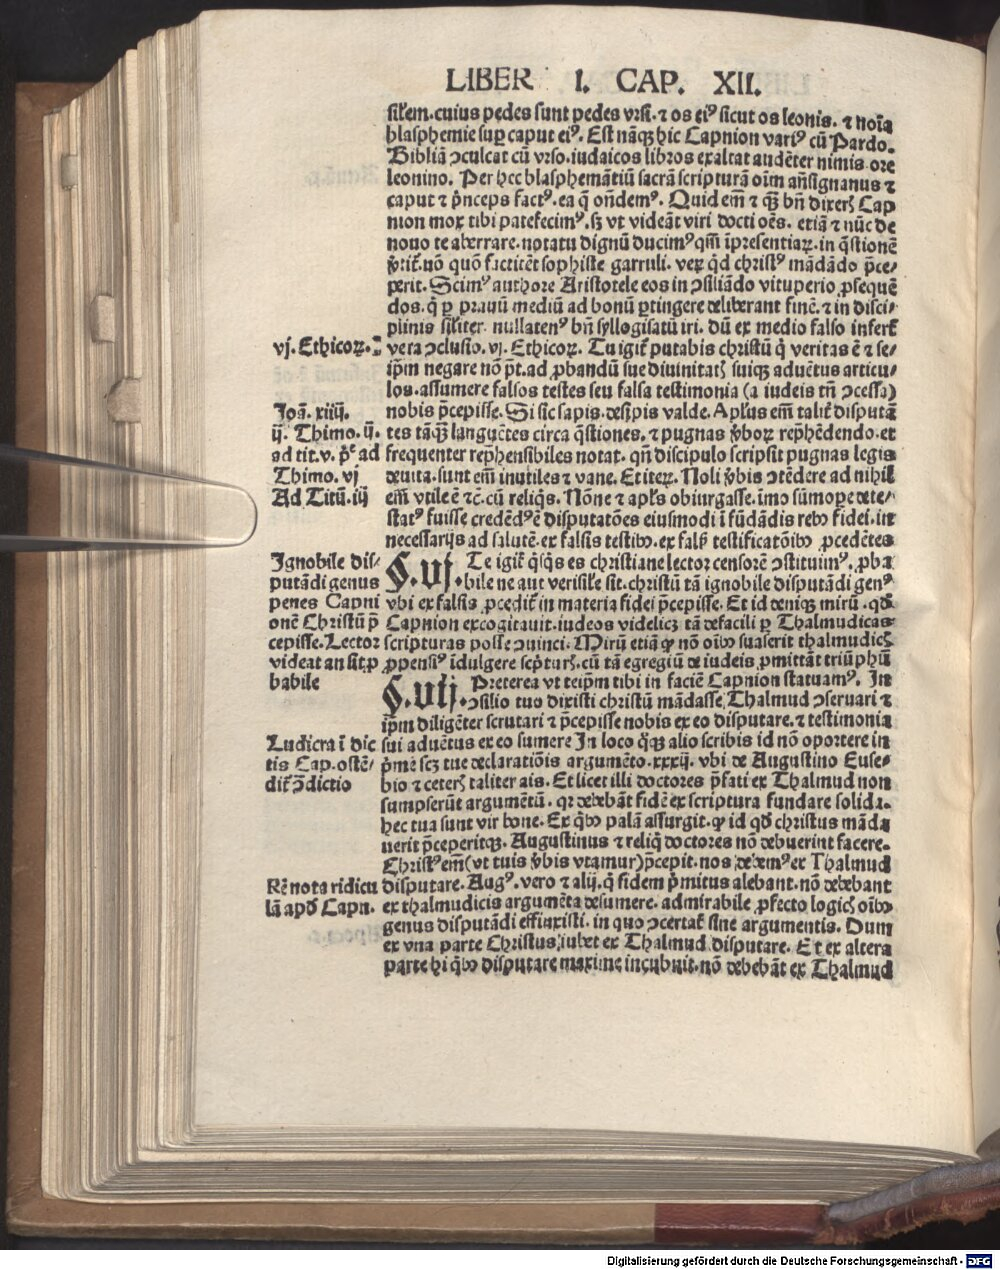 LIBER I. CAP. XII.
silem. cuius pedes sunt pedes vrsi. ⁊ os eiꝰ sicut os leonis. ⁊ noīa
blasphemie sup caput eiꝰ. Est nāqꝫ hic Capnion variꝰ cū Pardo.
Bibliā ↄculcat cū vrso. iudaicos libros exaltat audēter nimis ore
leonino. Per hec blasphemātiū sacrā scripturā oīm añsignanus ⁊
caput ⁊ p̄nceps factꝰ. ea q̄ ondemꝰ. Quid em̄ ⁊ qꝫ bñ dixerꝭ Cap
nion mox tibi patefecimꝰ. sꝫ vt videāt viri docti oēs. etiā ⁊ nūc de
nouo te aberrare. notatu dignū ducimꝰ qm̄ īpresentiaꝝ. in q̄stionē
quō factitēt sophiste garruli. veꝝ qd christꝰ mādādo p̄ce-
perit. Scimꝰ authore Aristotele eos in ↄsiliādo vituperio ꝓsequē
dos. q̄ ꝑ prauū mediū ad bonū ꝑtingere deliberant finē. ⁊ in disci-
plinis siliter nullatenꝰ bñ syllogisatū iri. dū ex medio falso infert̄
vera ↄclusio. vj. Ethicoꝝ. Tu igit̄ putabis christū q̄ veritas ē ⁊ se-
ip̄m negare nō pt̄. ad ꝓbandū sue diuinitatꝭ suiqꝫ aduētus articu-
los. assumere falsos testes seu falsa testimonia (a iudeis tñ ↄcessa)
nobis p̄cepisse. Si sic sapis. desipis valde. Apl̄us em̄ talit̄ disputā
tes tāqꝫ languētes circa q̄stiones. ⁊ pugnas v̄boꝝ rep̄hēdendo. et
frequenter rep̄hensibiles notat. qñ discipulo scripsit pugnas legis
deuita. sunt em̄ inutiles ⁊ vane. Et iteꝝ. Noli v̄bis ↄtēdere ad nihil
em̄ vtile ē ⁊c̄. cū reliqꝭ. Nōne ⁊ apl̄s obiurgasse. īmo sūmope dete-
statꝰ fuisse credēdꝰ ē disputatōes eiusmodi ī fūdādis rebꝰ fidei. in
necessarijs ad salutē. ex falsis testibꝰ. ex falsꝭ testificatōibꝰ ꝓcedētes
§. vj. Te igit̄ q̄sq̄s es christiane lector censorē ↄstituimꝰ. ꝓba
bile ne aut verisile sit. christū tā ignobile disputādi genꝰ
vbi ex falsis ꝓcedit̄ in materia fidei p̄cepisse. Et id deniqꝫ mirū. qd
Capnion excogitauit. iudeos videlicꝫ tā defacili ꝑ Thalmudicas
scripturas posse ↄuinci. Mirū etiā ꝙ nō oībꝰ suaserit thalmudicꝭ
ꝓpensiꝰ īdulgere scpturꝭ. cū tā egregiū de iudeis ꝓmittāt triūphū
§. vij. Preterea vt teip̄m tibi in faciē Capnion statuamꝰ. In
ↄsilio tuo dixisti christū mādasse Thalmud ↄseruari ⁊
ip̄m diligēter scrutari ⁊ p̄cepisse nobis ex eo disputare. ⁊ testimonia
sui aduētus ex eo sumere In loco q̄qꝫ alio scribis id nō oportere in
p̄me scꝫ tue declaratiōis argumēto. xxxij. vbi de Augustino Euse-
bio ⁊ ceterꝭ taliter ais. Et licet illi doctores p̄fati ex Thalmud non
sumpserūt argumētū. qꝛ debebāt fidē ex scriptura fundare solida.
hec tua sunt vir bone. Ex qbꝰ palā assurgit. ꝙ id qd christus māda
uerit p̄ceperitqꝫ. Augustinus ⁊ reliq̄ doctores nō debuerint facere.
Christꝰ em̄ (vt tuis v̄bis vtamur) p̄cepit. nos debemꝰ ex Thalmud
disputare. Augꝰ. vero ⁊ alij. q̄ fidem p̄mitus alebant. nō debebant
ex thalmudicis argumēta desumere. admirabile ꝓfecto logicꝭ oībꝰ
genus disputādi effinxisti. in quo ↄcertat̄ sine argumentis. Dum
ex vna parte Christus iubet ex Thalmud disputare. Et ex altera
parte hi qbꝰ disputare maxime incūbuit. nō debebāt ex Thalmud
vj. Ethicoꝝ.
Joā. xiiij.
ij. Thimo. ij.
ad tit. v. p̄ᵉ ad
Thimo. vj
Ad Titū. iij
Ignobile dis-
putādi genus
penes Capni
onē Christū p̄
cepisse. Lector
videat an sit ꝓ
babile
Ludicra ī dic
tis Cap. ostē-
dit̄ ↄ̄dictio
Rē nota ridicu
lā apd Capn.
Digitalisierung gefördert durch die Deutsche Forschungsgemeinschaft - DFG